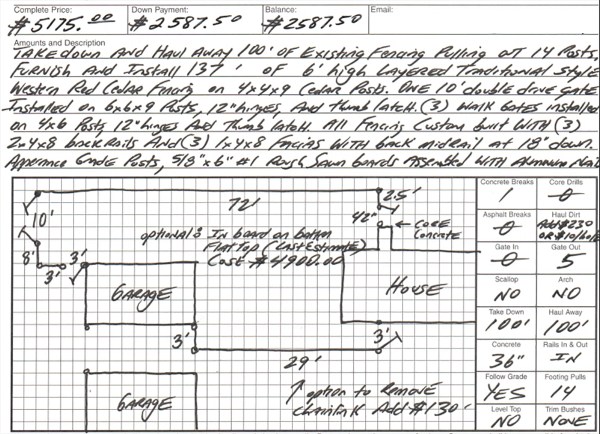 Complete Price: Down Payment: Balance: Email:
$5175.00 $2587.50 $2587.50
Amounts and Description
TAKE down AND HAUL AWAY 100' OF Existing Fencing Pulling out 14 Posts.
FURNISH AND INSTALL 137' OF 6' high LAYERED TRADITIONAL STYLE
Western Red CEDAR Fencing on 4x4x9 CEDAR Posts. ONE 10' double drive gate
Installed on 6x6x9 Posts, 12" hinges, AND Thumb latch. (3) WALK GATES installed
on 4x6 Posts, 12" hinges AND Thumb latch. ALL Fencing Custom built WITH (3)
2x4x8 back RAILS AND (3) 1x4x8 FACINGS WITH back midrail at 18" down.
Apperance Grade Posts, 5/8"x6" #1 Rough Sawn boards Assembled WITH Aluminum Nails
72'
2.5'
42"
← CORE
CONCRETE
10'
8'
3'
3'
optional: 1x board on bottom
FLAT TOP (LAST ESTIMATE)
COST $4900.00
GARAGE
HOUSE
3'
3'
29'
↑ option to REMOVE
CHAINLINK Add $130.
GARAGE
Concrete Breaks Core Drills
1 0
Asphalt Breaks Haul Dirt
0 Add $230
OR $10/hole
Gate In Gate Out
0 5
Scallop Arch
NO NO
Take Down Haul Away
100' 100'
Concrete Rails In & Out
36" IN
Follow Grade Footing Pulls
YES 14
Level Top Trim Bushes
NO NONE